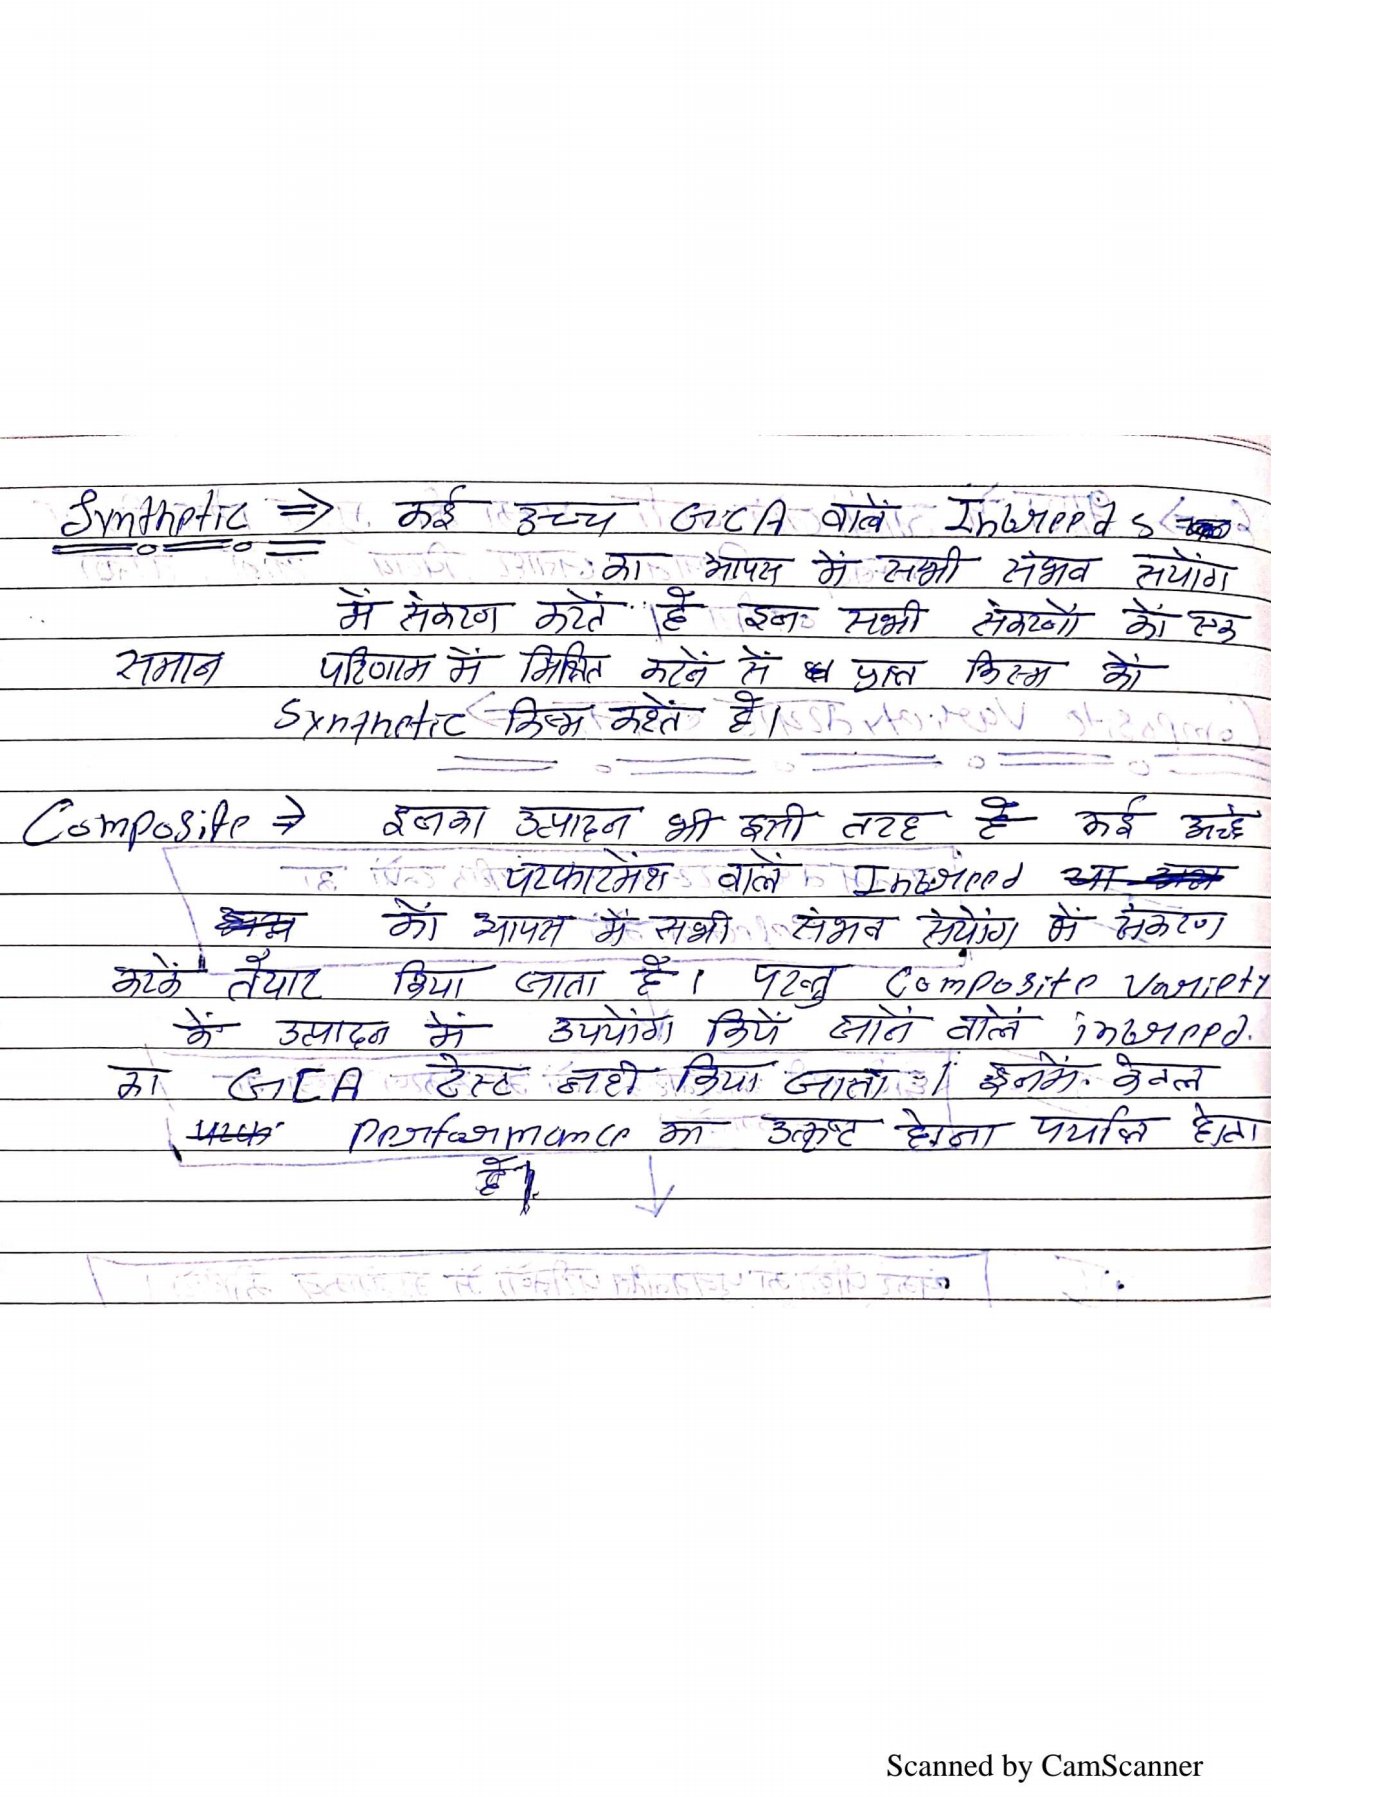 Synthetic ⇒ कई उच्च GCA वालें Inbreeds
का आपस में सभी संभव सयोंग
में संकरण करतें हैं इन सभी संकरणों कों एक
समान परिणाम में मिश्रित करनें सें प्राप्त किस्म कों
Synthetic किस्म कहतें हैं।
Composite ⇒ इनका उत्पादन भी इसी तरह है कई अच्छे
परफारमेंश वालें Inbreed
कों आपस में सभी संभव संयोंग में संकरण
करकें तैयार किया जाता हैं। परन्तु Composite Variety
कें उत्पादन में उपयोंग कियें जानें वालें inbreed.
का GCA टेस्ट नही किया जाता। इनमें केवल
Performance का उत्कृष्ट होना पर्याप्त होता
हैं।
Scanned by CamScanner